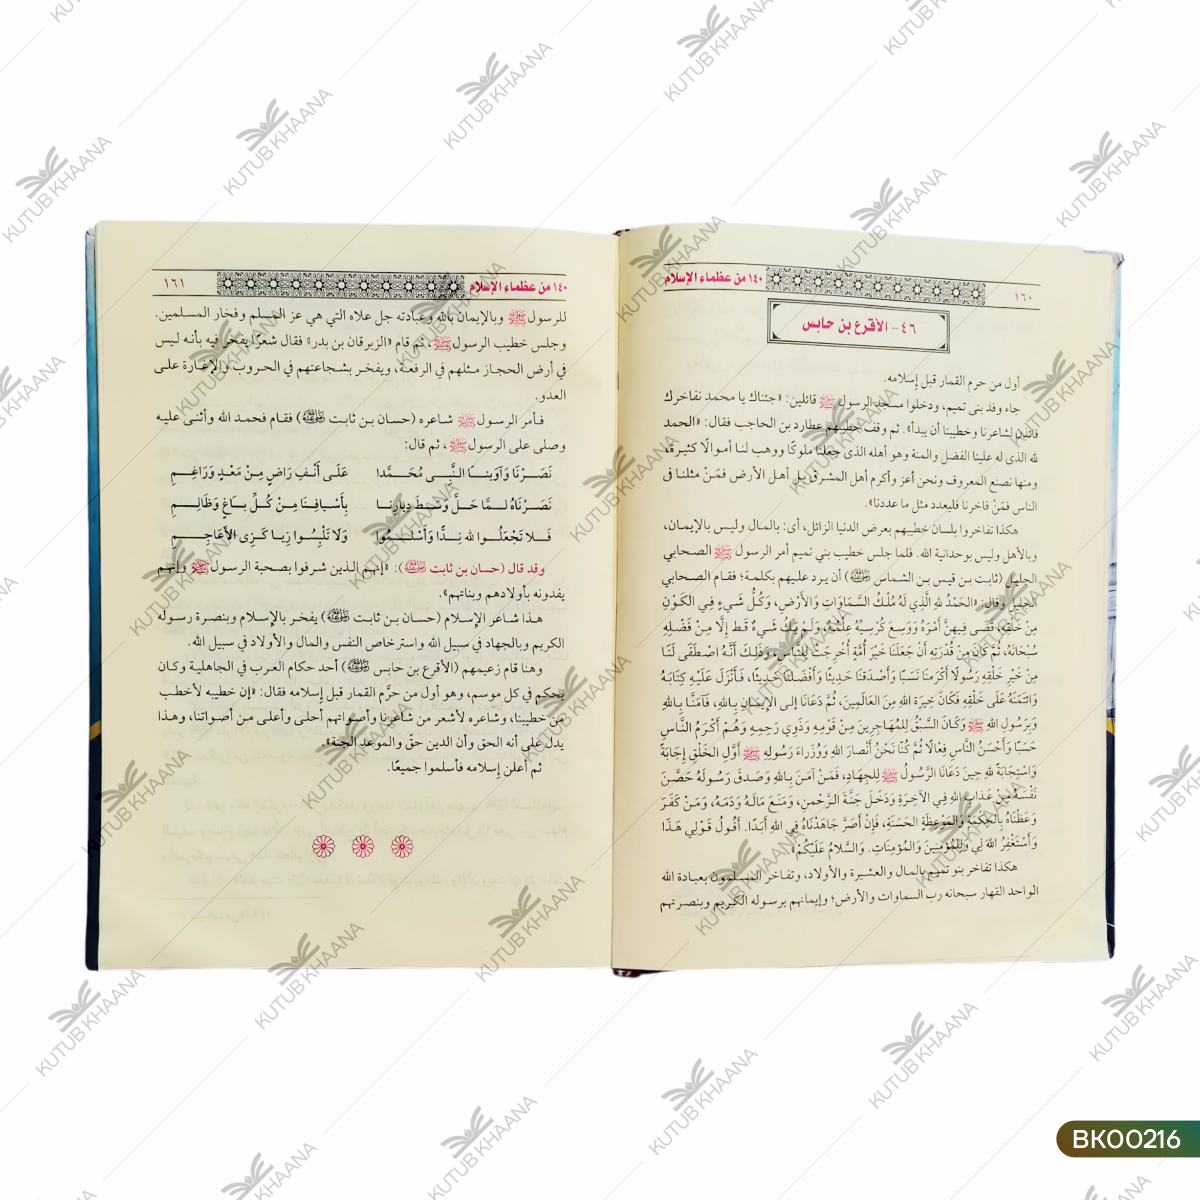 ١٦٠
١٤٠ من عظماء الإسلام
٤٦ - الأقرع بن حابس
أول من حرم القمار قبل إسلامه.
جاء وفد بنى تميم، ودخلوا مسجد الرسول ﷺ قائلين: «جئناك يا محمد نفاخرك
فائذن لشاعرنا وخطيبنا أن يبدأ». ثم وقف خطيبهم عطارد بن الحاجب فقال: «الحمد
لله الذى له علينا الفضل والمنة وهو أهله الذى جعلنا ملوكًا ووهب لنا أموالًا كثيرة،
ومنها نصنع المعروف ونحن أعز وأكرم أهل المشرق بل أهل الأرض فمَنْ مثلنا فى
الناس فمَنْ فاخرنا فليعدد مثل ما عددنا».
هكذا تفاخروا بلسان خطيبهم بعرض الدنيا الزائل، أى: بالمال وليس بالإيمان،
وبالأهل وليس بوحدانية الله. فلما جلس خطيب بني تميم أمر الرسول ﷺ الصحابي
الجليل (ثابت بن قيس بن الشماس رضي الله عنه) أن يرد عليهم بكلمة؛ فقام الصحابي
الجليل وقال: «الحَمْدُ للهِ الَّذِي لَهُ مُلْكُ السَّمَاوَاتِ وَالأَرْضِ، وَكُلُّ شَيءٍ فِي الكَوْنِ
مِنْ خَلْقِهِ، قَضَى فِيهِنَّ أَمْرَهُ وَوَسِعَ كُرْسِيُّهُ عِلْمُهُ، وَلَمْ يَكُ شَيءٌ قَط إلَّا مِنْ فَضْلِهِ
سُبْحَانَهُ، ثُمَّ كَانَ مِنْ قُدْرَتِهِ أَنْ جَعَلَنَا خَيْرَ أُمَّةٍ أُخْرِجَتْ لِلنَّاسِ، وَذَلِكَ أَنَّهُ اصْطَفَى لَنَا
مِنْ خَيْرِ خَلْقِهِ رَسُولًا أَكْرَمَنَا نَسَبًا وَأَصْدَقَنَا حَدِيثًا وَأَفْضَلَنَا حَدِيثًا، فَأَنْزَلَ عَلَيْهِ كِتَابَهُ
وَائتَمَنَهُ عَلَى خَلْقِهِ فَكَانَ خِيرَةَ اللهِ مِنَ العَالَمِينَ، ثُمَّ دَعَانَا إلى الإِيمَانِ بِاللهِ، فَآمَنَّا بِاللهِ
وَبِرَسُولِ اللهِ ﷺ وَكَانَ السَّبْقُ لِلمُهَاجِرِينَ مِنْ قَوْمِهِ وَذَوِي رَحِمِهِ وَهُمْ أَكْرَمُ النَّاسِ
حَسَبًا وَأَحْسَنُ النَّاسِ فِعَالًا ثُمَّ كُنَّا نَحْنُ أَنْصَارَ اللهِ وَوُزَرَاءَ رَسُولِهِ ﷺ أَوَّلَ الخَلْقِ إِجَابَةً
وَاسْتِجَابَةً للهِ حِينَ دَعَانَا الرَّسُولُ ﷺ لِلجِهَادِ، فَمَنْ آمَنَ بِاللهِ وَصَدقَ رَسُولَهُ حَصَّنَ
نَفْسَهُ مِنْ عَذَابِ اللهِ فِي الآخِرَةِ وَدَخَلَ جَنَّةَ الرَّحْمنِ، وَمَنَعَ مَالَهُ وَدَمَهُ، وَمَنْ كَفَرَ
وَعَظْنَاهُ بِالحِكْمَةِ وَالمَوْعِظَةِ الحَسَنَةِ، فَإِنْ أَصَرَّ جَاهَدْنَاهُ فِي اللهِ أَبَدًا. أَقُولُ قَوْلِي هَذَا
وَأَسْتَغْفِرُ اللهَ لِي وَلِلمُؤْمِنِينَ وَالمُؤْمِنَاتِ. وَالسَّلَامُ عَلَيْكُمْ».
هكذا تفاخر بنو تميم بالمال والعشيرة والأولاد، وتفاخر المسلمون بعبادة الله
الواحد القهار سبحانه رب السماوات والأرض؛ وإيمانهم برسوله الكريم وبنصرتهم
١٤٠ من عظماء الإسلام
١٦١
للرسول ﷺ وبالإيمان بالله وعبادته جل علاه التي هي عز المسلم وفخار المسلمين.
وجلس خطيب الرسول ﷺ، ثم قام «الزبرقان بن بدر» فقال شعرًا يفخر فيه بأنه ليس
في أرض الحجاز مثلهم في الرفعة، ويفخر بشجاعتهم في الحروب والإغارة على
العدو.
فأمر الرسول ﷺ شاعره (حسان بن ثابت رضي الله عنه) فقام فحمد الله وأثنى عليه
وصلى على الرسول ﷺ، ثم قال:
نَصَرْنَا وَآوَيْنَا النَّبِي مُحَمَّدا عَلَى أَنْفِ رَاضٍ مِنْ مَعْدٍ وَرَاغِمِ
نَصَرْنَاهُ لمَّا حَلَّ وَسَطَ دِيارِنا بِأَسْيافِنَا مِنْ كُلِّ بَاغٍ وَظَالِمِ
فَلا تَجْعَلُوا لله نِدًّا وَأَسْلِمُوا وَلَا تَلْبِسُوا زِيا كَزِى الأَعَاجِمِ
وقد قال (حسان بن ثابت رضي الله عنه): «إنهم الذين شرفوا بصحبة الرسول ﷺ وإنهم
يفدونه بأولادهم وبناتهم».
هذا شاعر الإسلام (حسان بن ثابت رضي الله عنه) يفخر بالإسلام وبنصرة رسوله
الكريم وبالجهاد في سبيل الله واسترخاص النفس والمال والأولاد في سبيل الله.
وهنا قام زعيمهم (الأقرع بن حابس رضي الله عنه) أحد حكام العرب في الجاهلية وكان
يحكم في كل موسم، وهو أول من حرَّم القمار قبل إسلامه فقال: «إن خطيبه لأخطب
من خطيبنا، وشاعره لأشعر من شاعرنا وأصواتهم أحلى وأعلى من أصواتنا، وهذا
يدل على أنه الحق وأن الدين حقّ والموعد الجنة».
ثم أعلن إسلامه فأسلموا جميعًا.
KUTUB KHAANA
BK00216